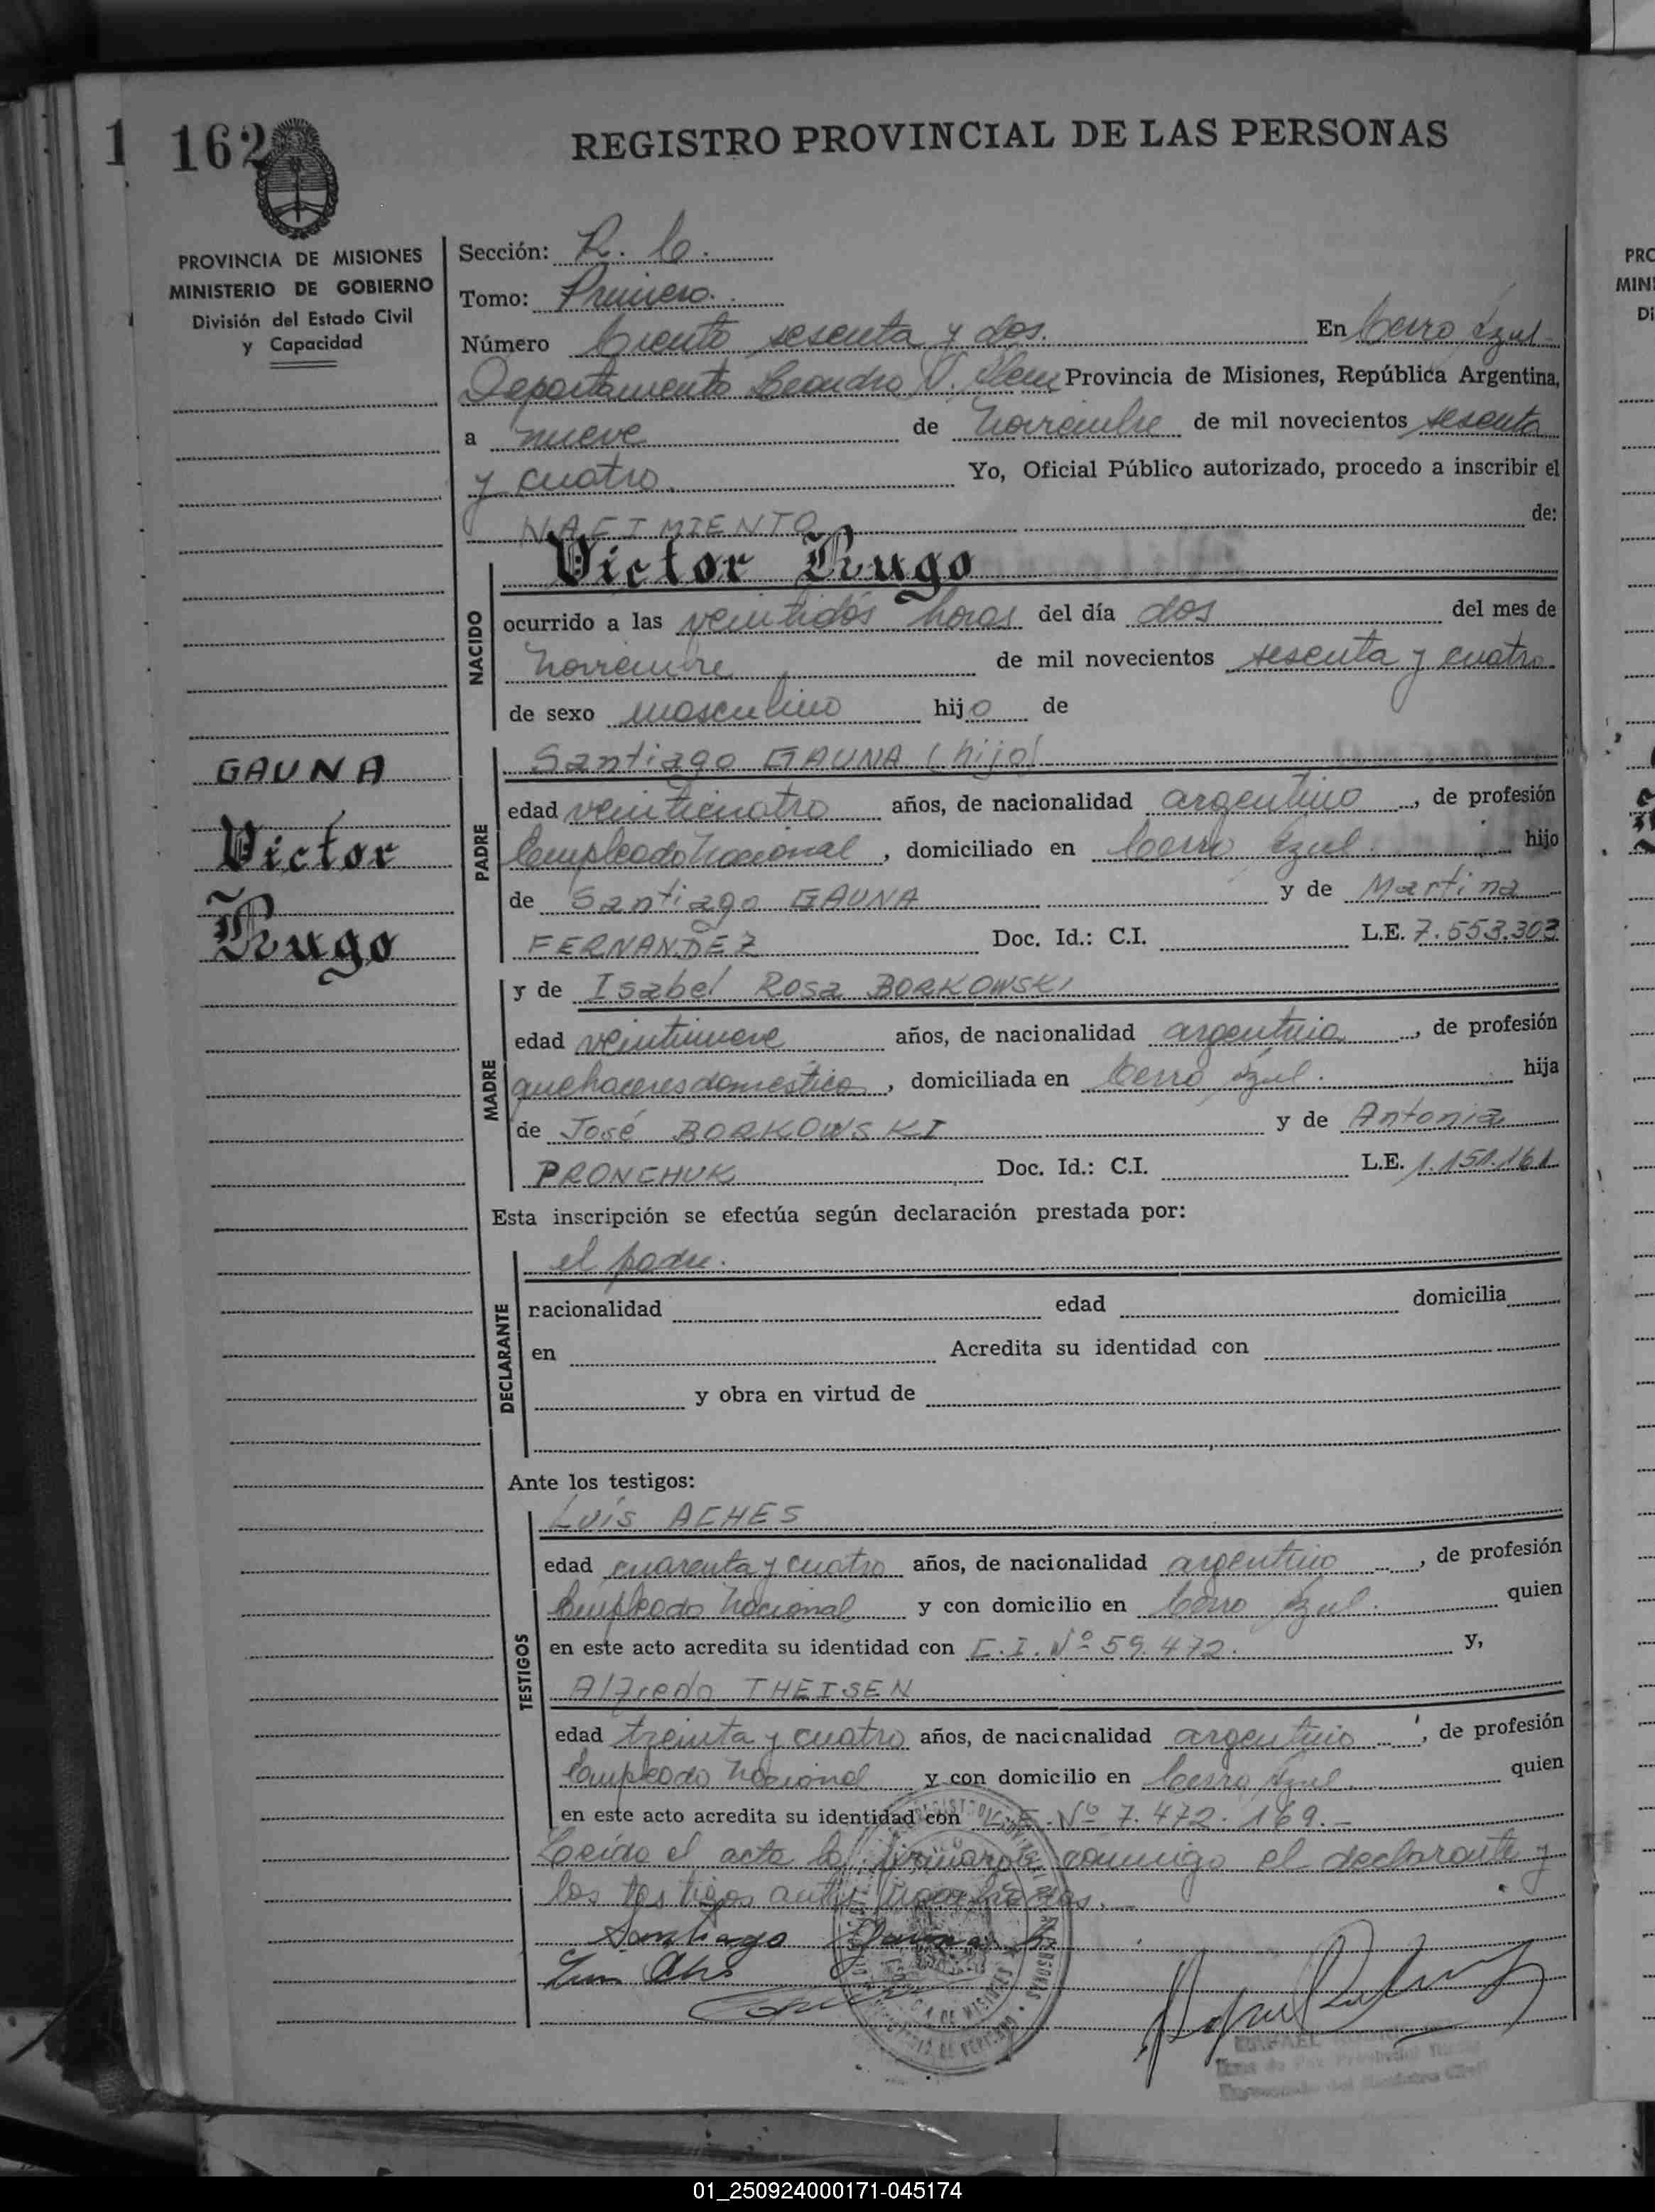 1 162
REGISTRO PROVINCIAL DE LAS PERSONAS
PROVINCIA DE MISIONES
MINISTERIO DE GOBIERNO
División del Estado Civil
y Capacidad
GAUNA
Victor
Hugo
Sección: R. C.
Tomo: Primero.
Número Ciento sesenta y dos. En Cerro Azul
Departamento Leandro N. Alem Provincia de Misiones, República Argentina,
a nueve de Noviembre de mil novecientos sesenta
y cuatro. Yo, Oficial Público autorizado, procedo a inscribir el
NACIMIENTO de:
NACIDO
Victor Hugo
ocurrido a las veintidós horas del día dos del mes de
Noviembre de mil novecientos sesenta y cuatro
de sexo masculino hijo de
PADRE
Santiago GAUNA (hijo)
edad veinticuatro años, de nacionalidad argentino, de profesión
Empleado Nacional, domiciliado en Cerro Azul. hijo
de Santiago GAUNA y de Martina
FERNANDEZ Doc. Id.: C.I. L.E. 7.553.303
MADRE
y de Isabel Rosa BORKOWSKI
edad veintinueve años, de nacionalidad argentina, de profesión
quehaceres domestico, domiciliada en Cerro Azul. hija
de José BORKOWSKI y de Antonia
PRONCHUK Doc. Id.: C.I. L.E. 1.151.161
Esta inscripción se efectúa según declaración prestada por:
DECLARANTE
el padre.
nacionalidad edad domicilia
en Acredita su identidad con
y obra en virtud de
Ante los testigos:
TESTIGOS
Luis ACHES
edad cuarenta y cuatro años, de nacionalidad argentino, de profesión
Empleado Nacional y con domicilio en Cerro Azul. quien
en este acto acredita su identidad con C.I. Nº 59.472. y,
Alfredo THEISEN
edad treinta y cuatro años, de nacionalidad argentino, de profesión
Empleado Nacional y con domicilio en Cerro Azul. quien
en este acto acredita su identidad con L.E. Nº 7.472.169.-
Leído el acta la firmaron conmigo el declarante y
los testigos
Santiago Gauna h
Luis
PRO
MINI
Di
01_250924000171-045174